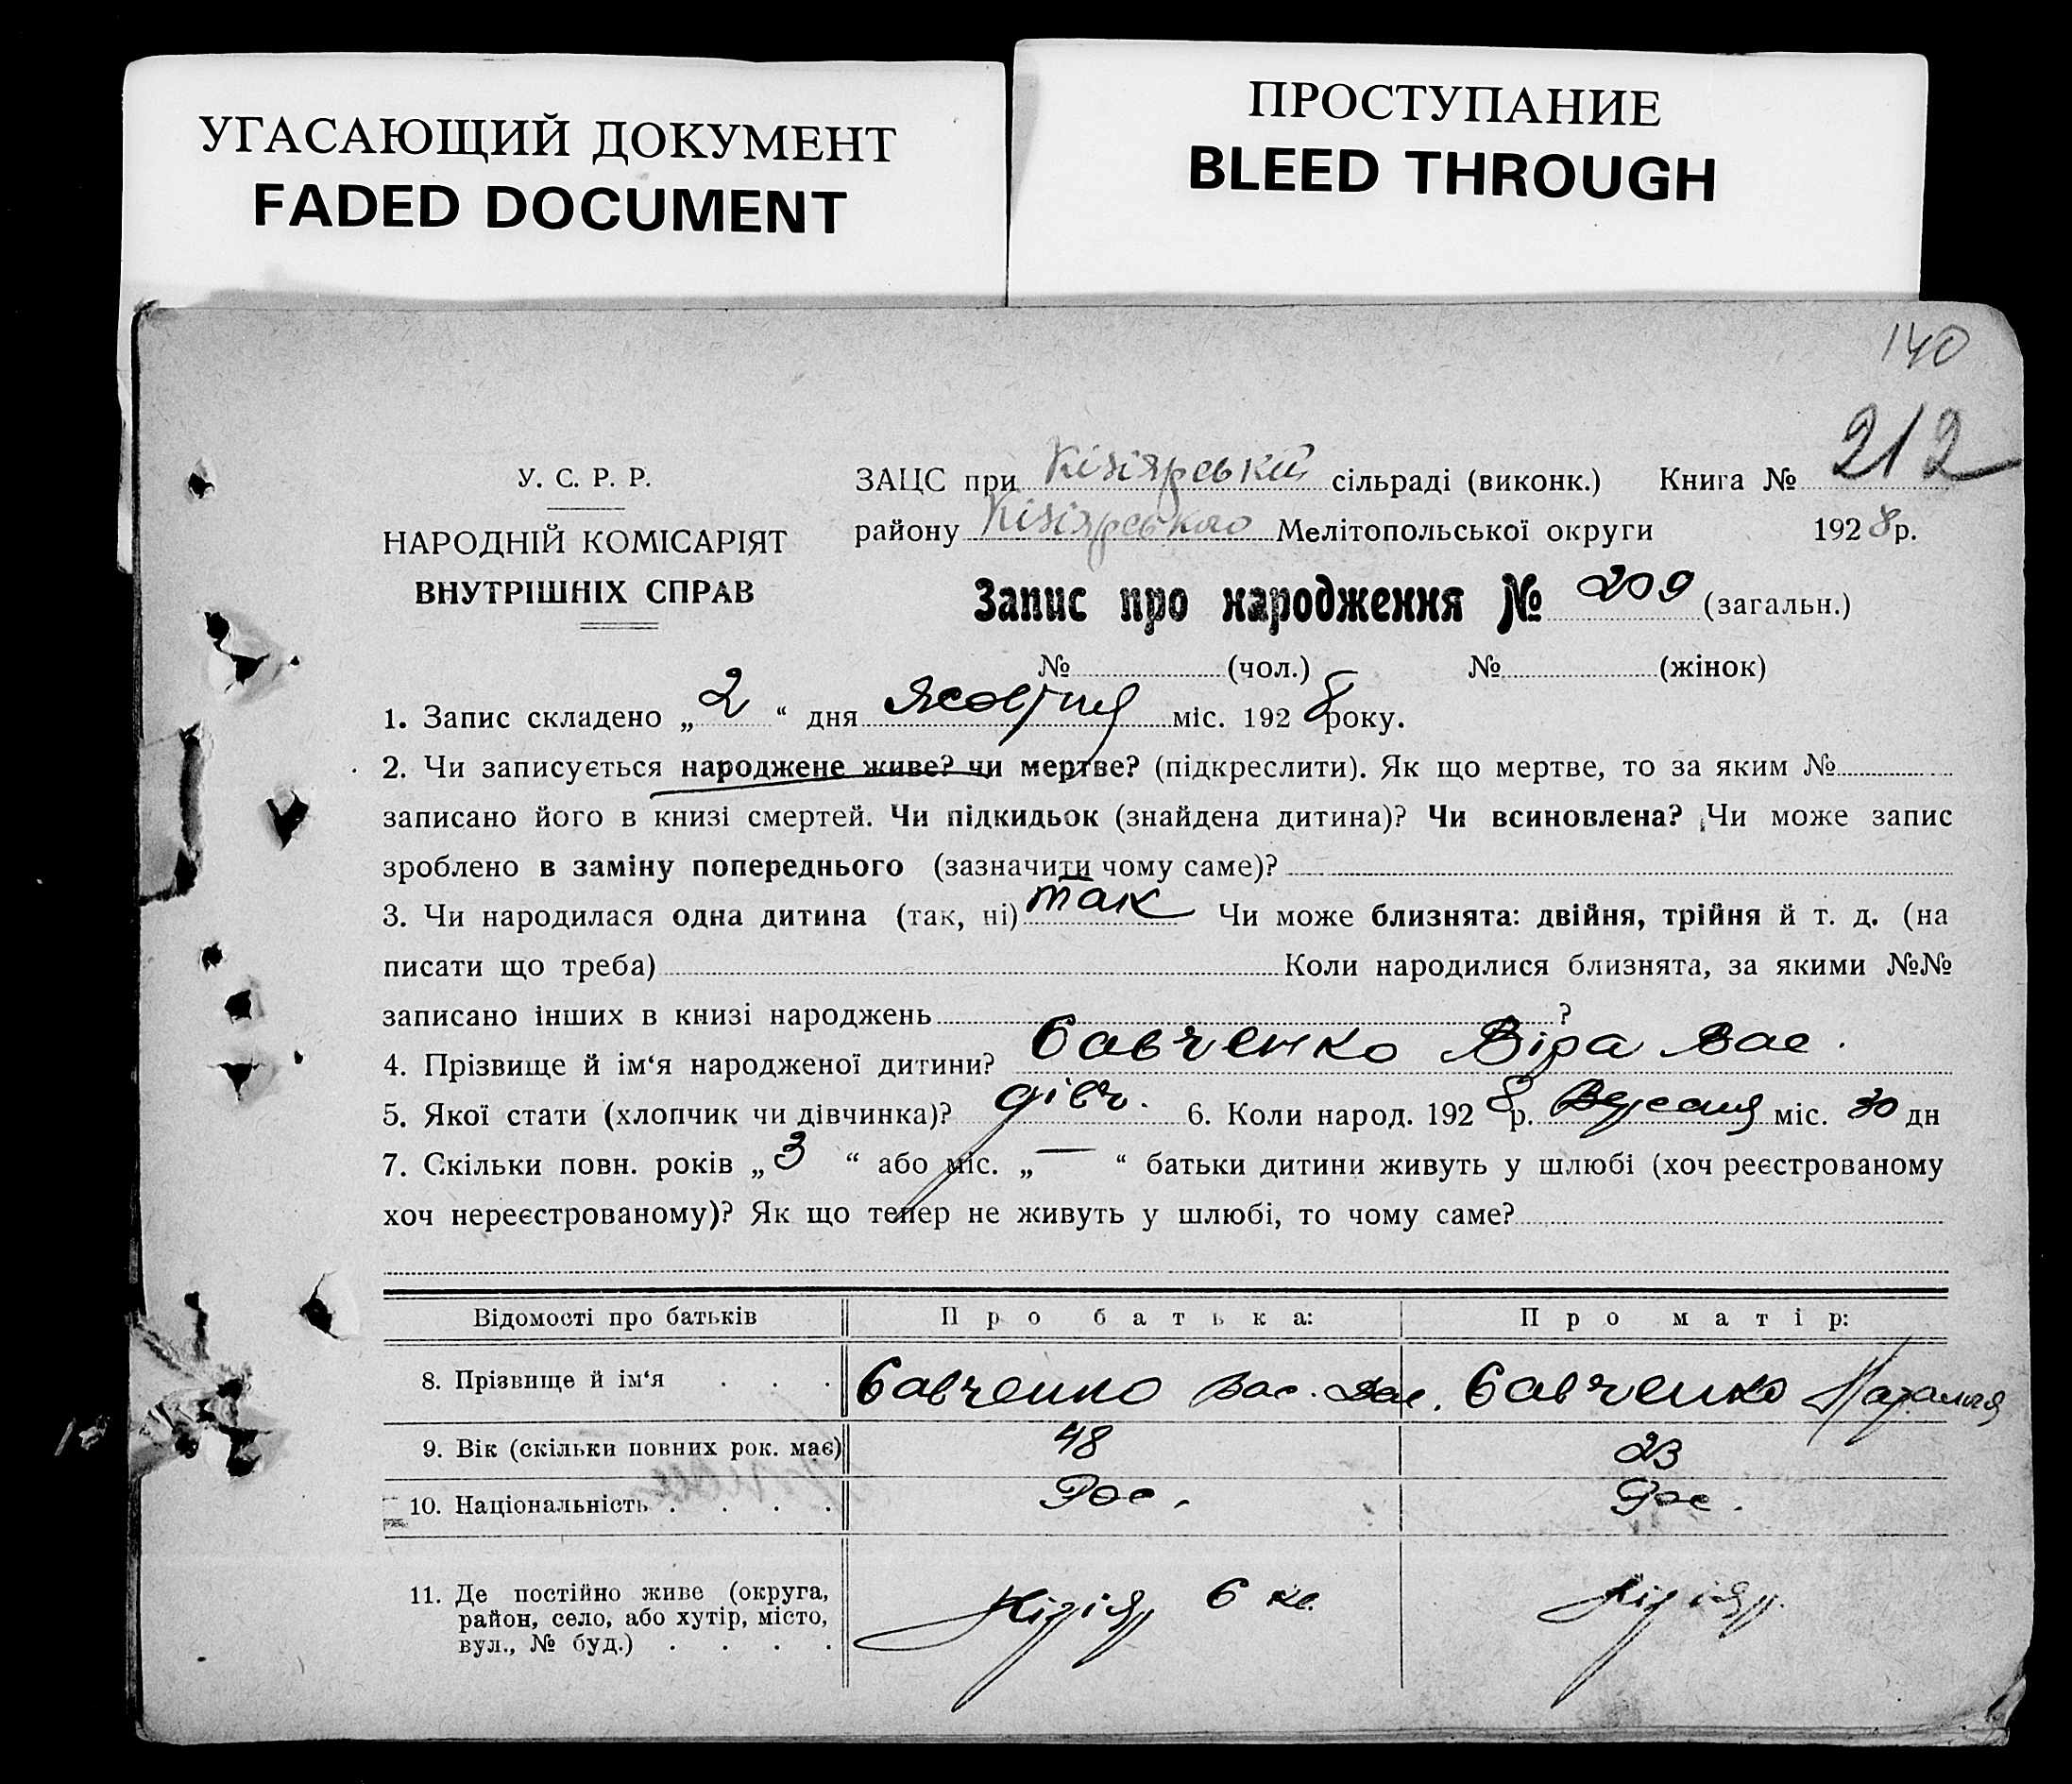 УГАСАЮЩИЙ ДОКУМЕНТ
FADED DOCUMENT
ПРОСТУПАНИЕ
BLEED THROUGH
140
У. С. Р. Р.
НАРОДНІЙ КОМІСАРІЯТ
ВНУТРІШНІХ СПРАВ
ЗАЦС при Кізіярській сільраді (виконк.) Книга № 212
району Кізіярського Мелітопольської округи 1928р.
Запис про народження № 209 (загальн.)
№ (чол.) № (жінок)
1. Запис складено „ 2 “ дня Жовтня міс. 1928 року.
2. Чи записується народжене живе? чи мертве? (підкреслити). Як що мертве, то за яким №
записано його в книзі смертей. Чи підкидьок (знайдена дитина)? Чи всиновлена? Чи може запис
зроблено в заміну попереднього (зазначити чому саме)?
3. Чи народилася одна дитина (так, ні) так Чи може близнята: двійня, трійня й т. д. (на
писати що треба) Коли народилися близнята, за якими №№
записано інших в книзі народжень ?
4. Прізвище й ім‘я народженої дитини? Савченко Віра Вас.
5. Якої стати (хлопчик чи дівчинка)? дівч. 6. Коли народ. 1928р. Вересня міс. 30 дн
7. Скільки повн. років „ 3 “ або міс. „ — “ батьки дитини живуть у шлюбі (хоч реєстрованому
хоч нереєстрованому)? Як що тепер не живуть у шлюбі, то чому саме?
Відомості про батьків Про батька: Про матір:
8. Прізвище й ім‘я . . . Савченко Вас. Савченко Наталія
9. Вік (скільки повних рок. має) 48 23
10. Національність . . . . Рос. Рос.
11. Де постійно живе (округа,
район, село, або хутір, місто,
вул., № буд.) . . . . Кізіяр 6 Кізіяр.